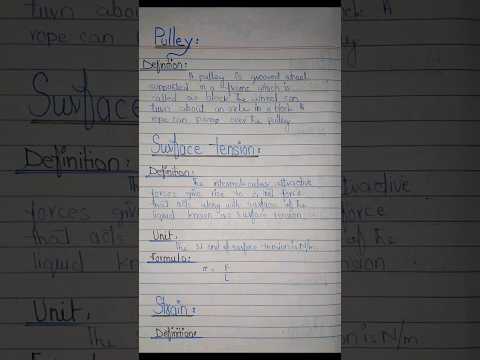 Pulley:
Definition:
A pulley is grooved wheel
supported in a frame which is
called as block the wheel can
turn about an axle in a block A
rope can pass over the pulley
Surface tension:
Definition:
The intermolecular attractive
forces give rise to a net force
that acts along with surface of the
liquid known as surface tension
Unit.
The SI unit of surface tension is N/m
Formula:
F
L
Strain:
Definition: